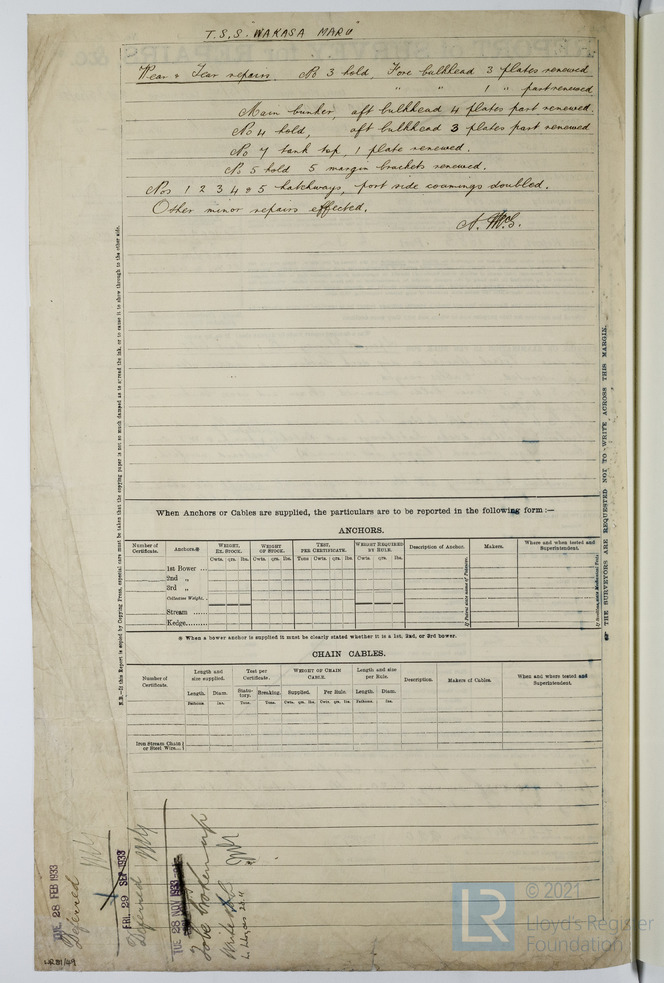 T.S.S. WAKASA MARU
Wear & Tear repairs. No 3 hold, Fore bulkhead 3 plates renewed
" " " 1 " part renewed.
Main bunker, aft bulkhead 4 plates part renewed.
No 4 hold, aft bulkhead 3 plates part renewed
No 7 tank top, 1 plate renewed.
No 5 hold 5 margin brackets renewed.
Nos 1 2 3 4 & 5 hatchways, port side coamings doubled.
Other minor repairs effected.
When Anchors or Cables are supplied, the particulars are to be reported in the following form :—
ANCHORS.
Number of Certificate. Anchors.* WEIGHT, EX. STOCK. WEIGHT OF STOCK. TEST, PER CERTIFICATE. WEIGHT REQUIRED BY RULE. Description of Anchor. Makers. Where and when tested and Superintendent.
Cwts. qrs. lbs. Cwts. qrs. lbs. Tons Cwts. qrs. lbs. Cwts. qrs. lbs.
1st Bower ...
2nd „
3rd „
Collective Weight.
Stream ......
Kedge.......
* When a bower anchor is supplied it must be clearly stated whether it is a 1st, 2nd, or 3rd bower.
CHAIN CABLES.
Number of Certificate. Length and size supplied. Test per Certificate. WEIGHT OF CHAIN CABLE. Length and size per Rule. Description. Makers of Cables. When and where tested and Superintendent.
Length. Diam. Statutory. Breaking. Supplied. Per Rule. Length. Diam.
Fathoms. Ins. Tons. Tons. Cwts. qrs. lbs. Cwts. qrs. lbs. Fathoms. Ins.
Iron Stream Chain or Steel Wire...
N.B.—If this Report is copied by Copying Press, especial care must be taken that the copying paper is not so much damped as to spread the ink, or to cause it to show through to the other side.
THE SURVEYORS ARE REQUESTED NOT TO WRITE ACROSS THIS MARGIN.
TUE 28 FEB 1933
Deferred
FRI. 29 SEP 1933
Deferred
TUE 28 NOV 1933
To be broken up
LR
© 2021
Lloyd's Register
Foundation